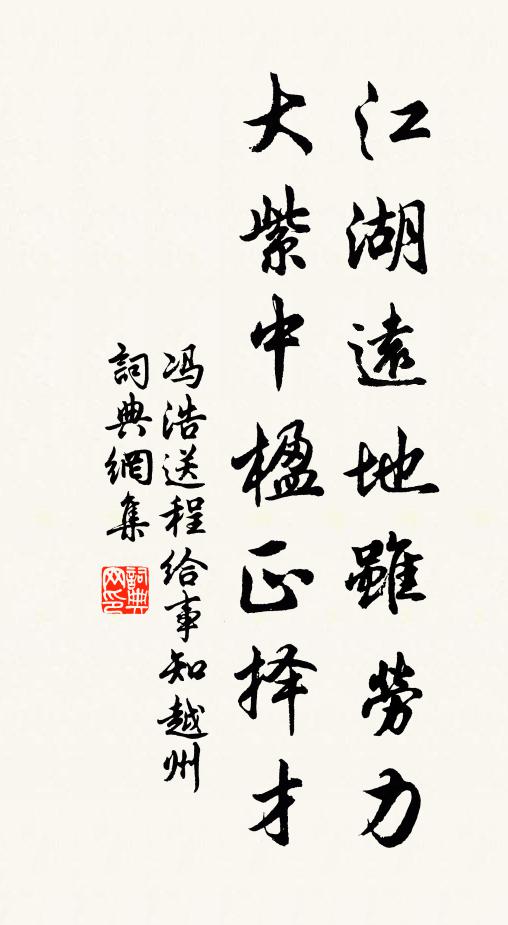 江湖遠地雖勞力
大紫中楹正择才
冯浩送程给事知越州
詞典網集
詞典
网印